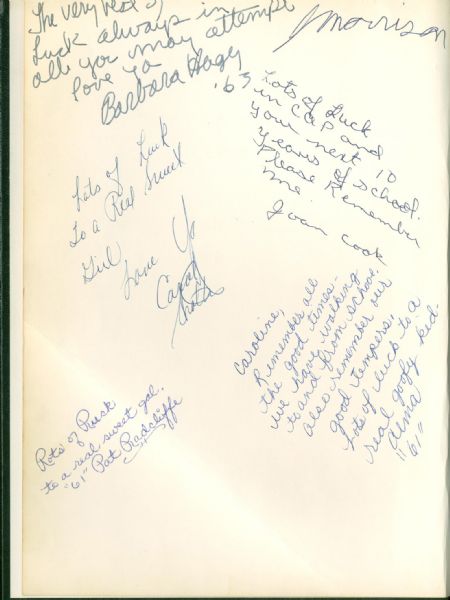 The very best of
Luck always in
all you may attempt
love ya
Barbara Hagy
'63
Morrison
Lots of Luck
in CAP and
your next 10
years of school.
Please Remember
me
Joan Cook
Lots of Luck
To a Real Sweet
Girl
Love Ya
Carol
Caroline,
Remember all
the good times
we have walking
to and from school.
also remember our
good tempers.
Lots of luck to a
real goofy kid.
Alma
"61"
Rots of Ruck
to a real sweet gal.
"61" Pat Radcliffe